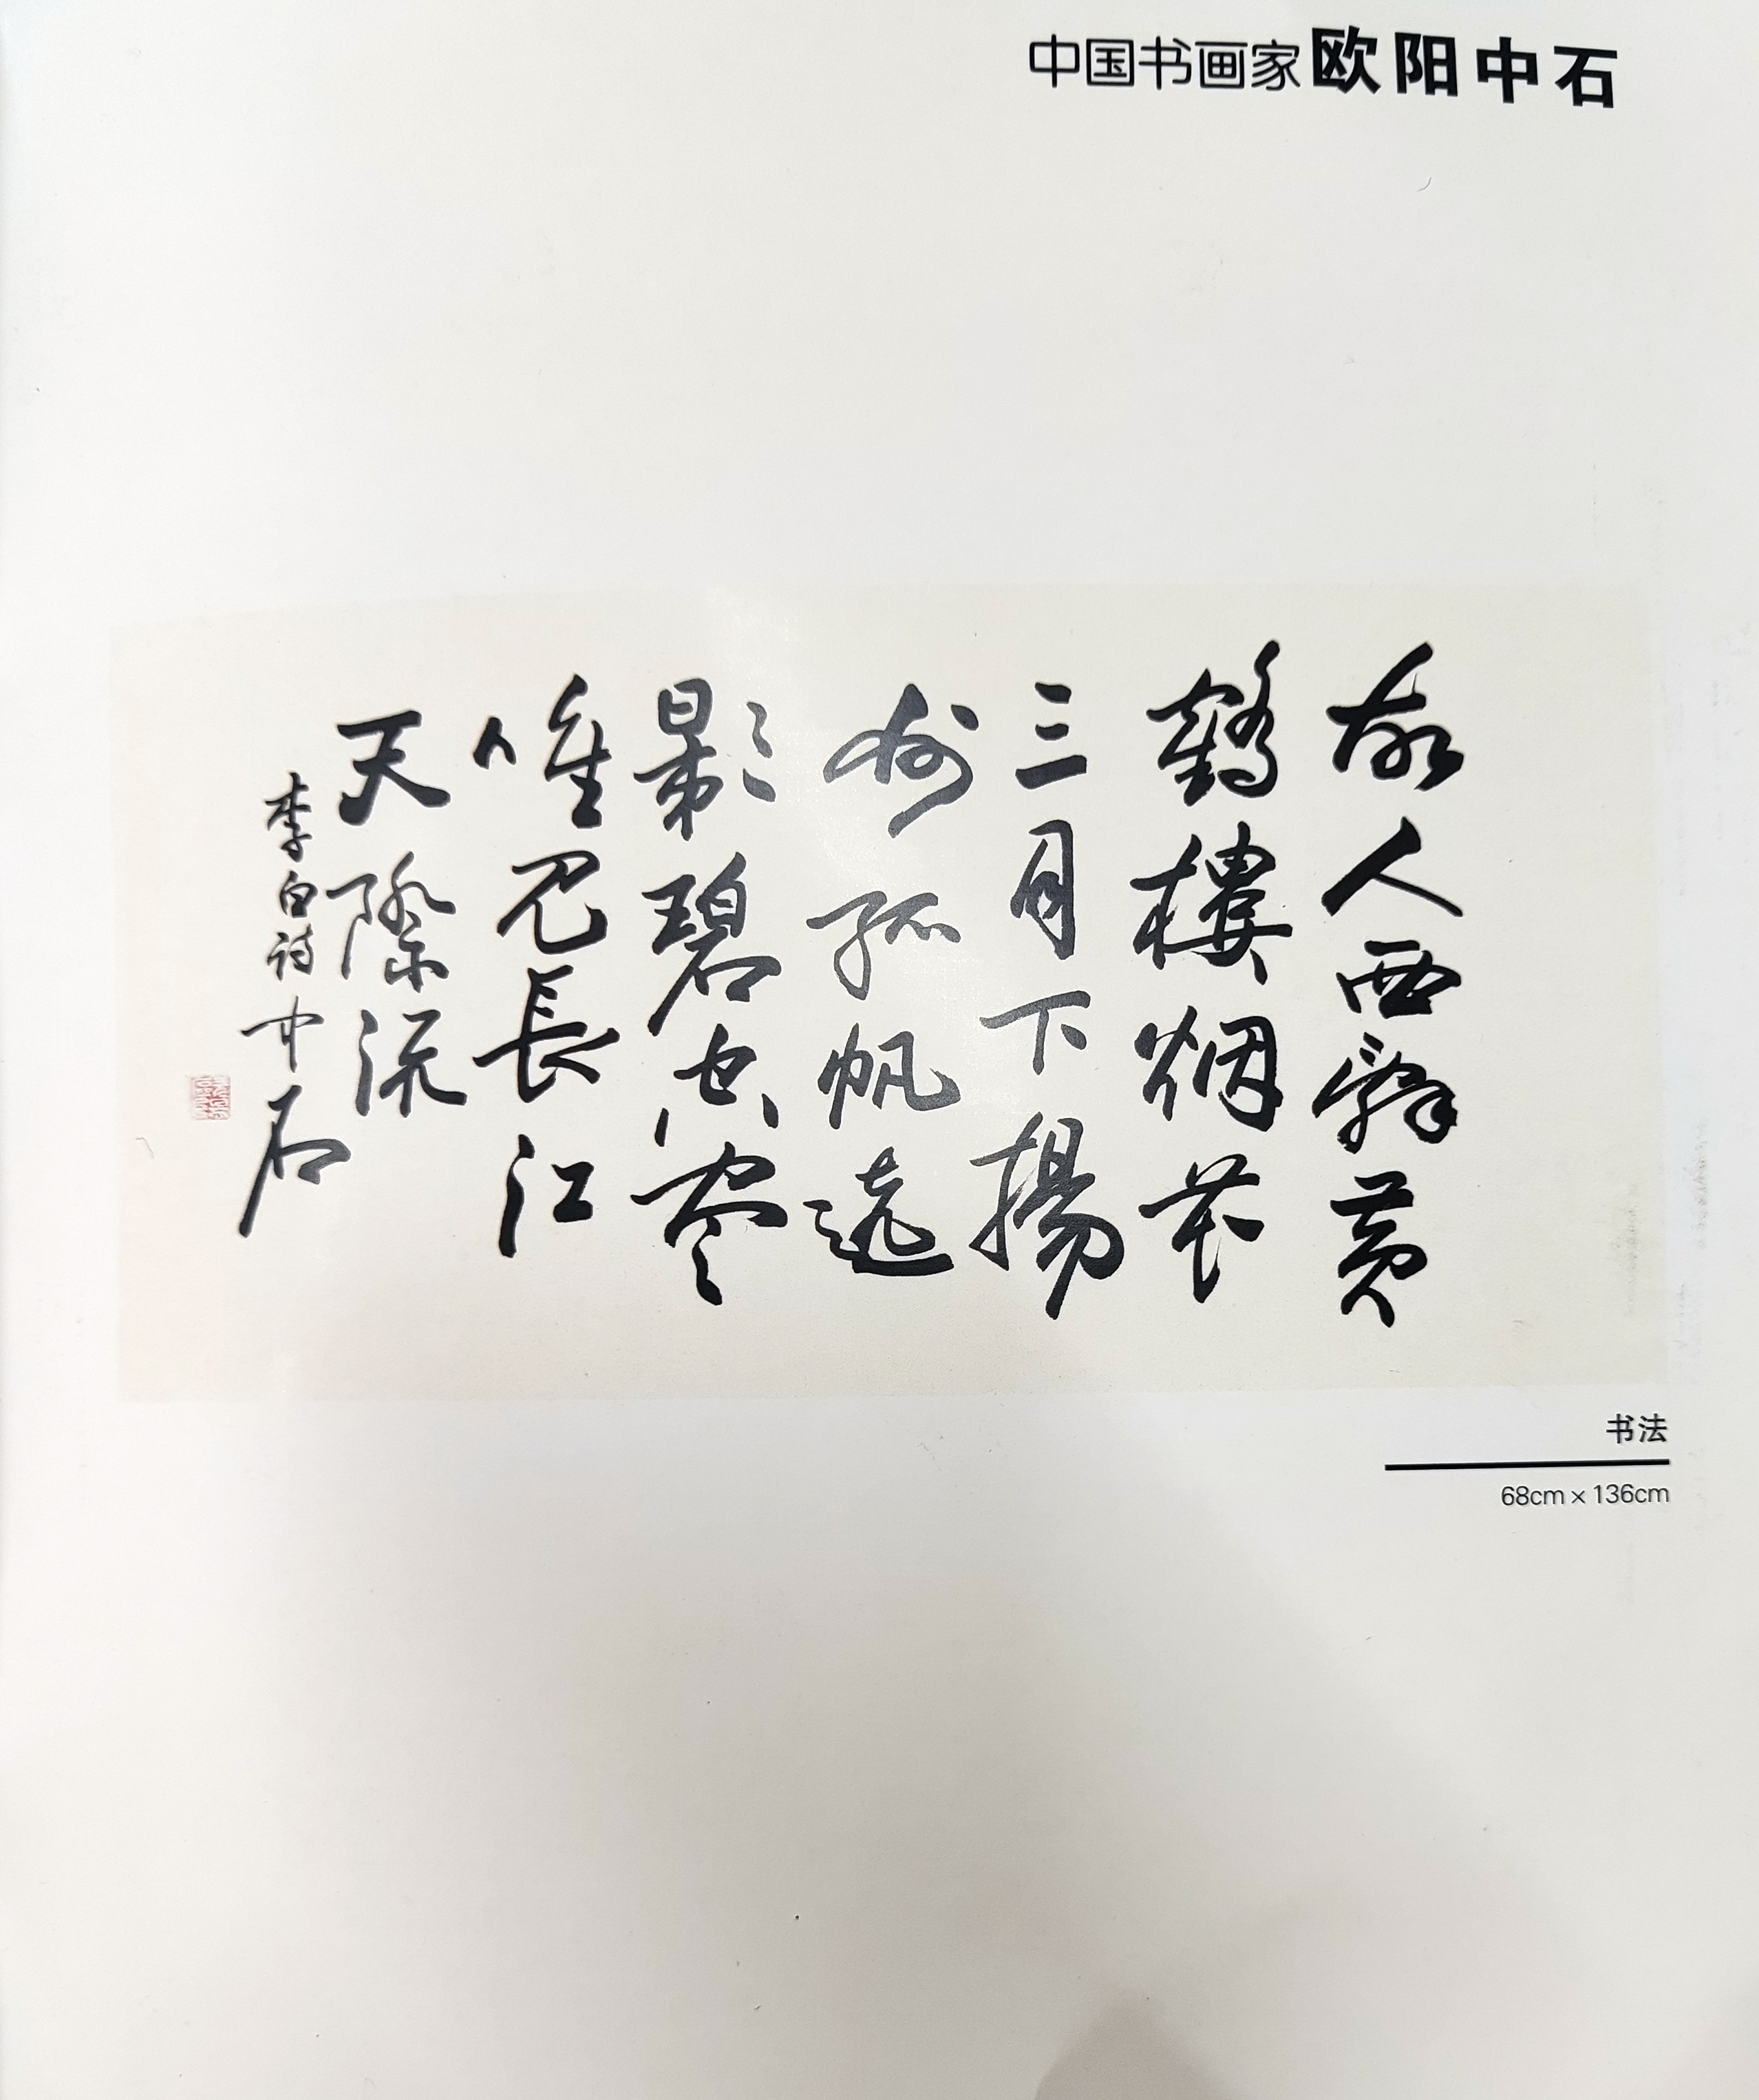 中国书画家欧阳中石
故人西辞黄
鹤樓烟花
三月下揚
州孤帆遠
影碧空尽
唯见長江
天際流
李白诗中石
书法
68cm×136cm